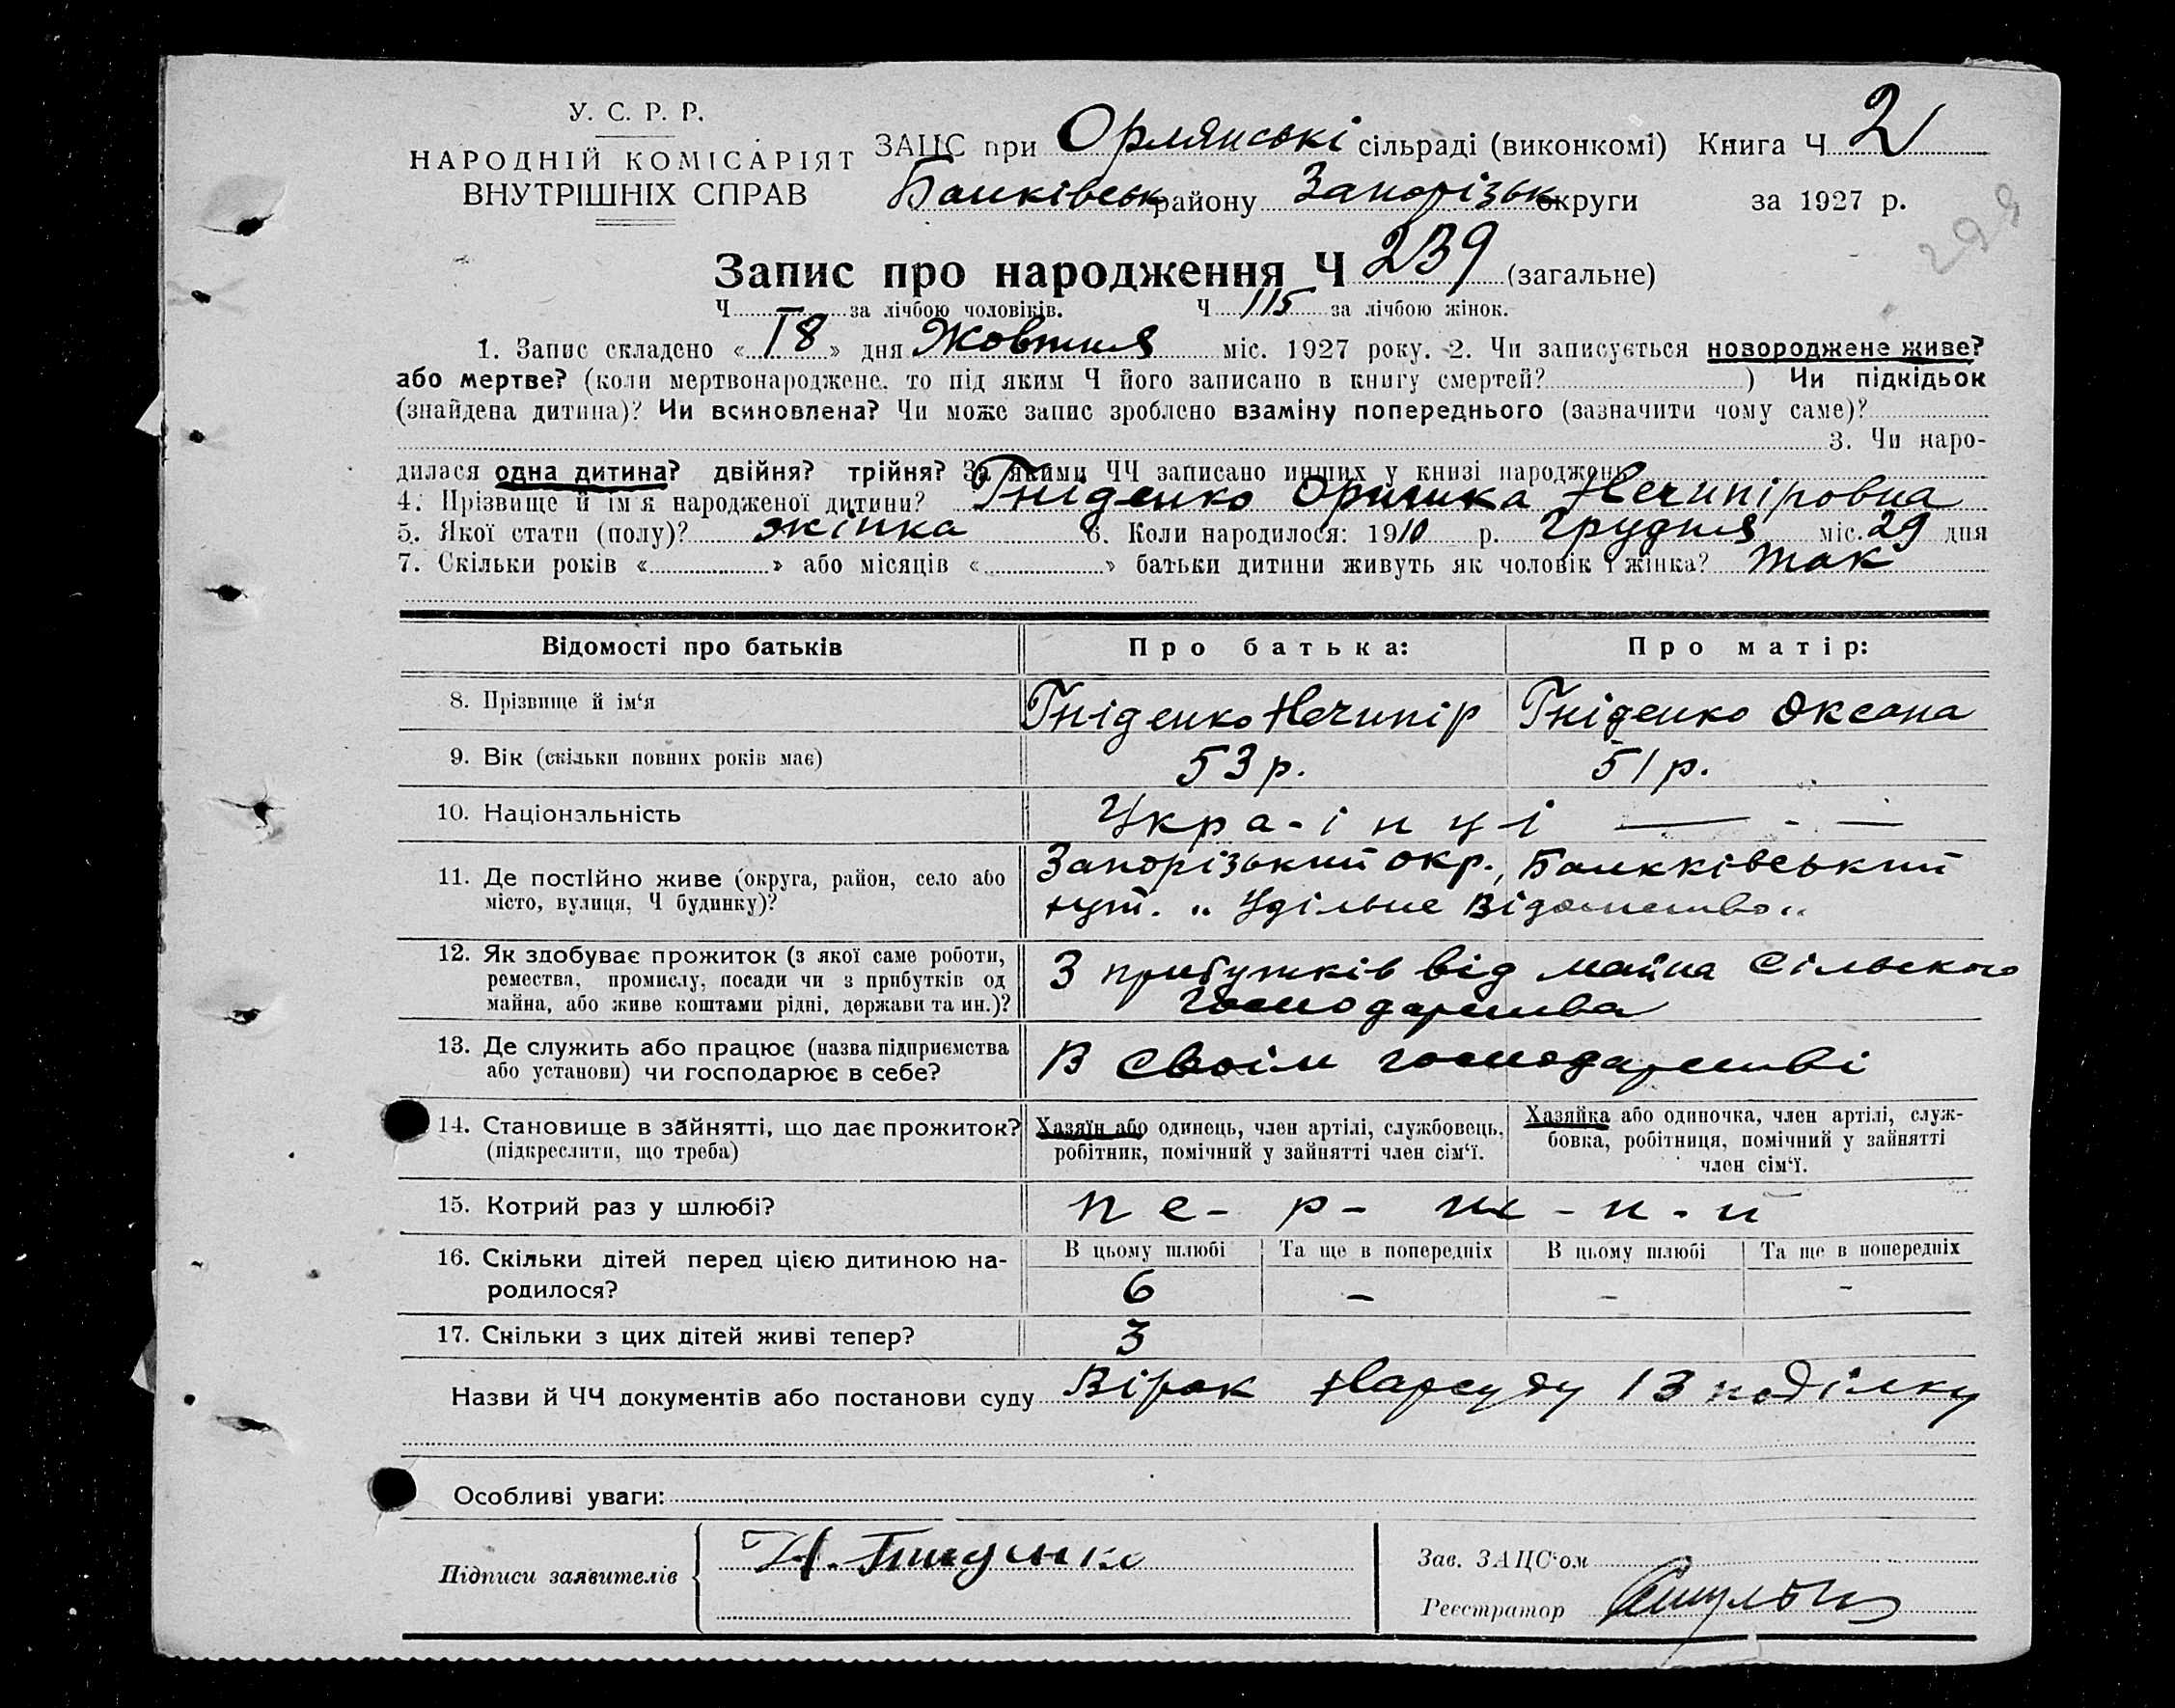 У. С. Р. Р.
НАРОДНІЙ КОМІСАРІЯТ
ВНУТРІШНІХ СПРАВ
ЗАЦС при Орлянські сільраді (виконкомі) Книга Ч 2
Балківськ району Запорізьк округи за 1927 р.
298
Запис про народження Ч 239 (загальне)
Ч за лічбою чоловіків. Ч 115 за лічбою жінок.
1. Запис складено « 18 » дня Жовтня міс. 1927 року. 2. Чи записується новороджене живе?
або мертве? (коли мертвонароджене, то під яким Ч його записано в книгу смертей? ) Чи підкідьок
(знайдена дитина)? Чи всиновлена? Чи може запис зроблено взаміну попереднього (зазначити чому саме)?
3. Чи наро-
дилася одна дитина? двійня? трійня? За якими ЧЧ записано инших у книзі народжень
4. Прізвище й ім'я народженої дитини? Гніденко Оришка Нечипіровна
5. Якої стати (полу)? жінка 6. Коли народилося: 1910 р. Грудня міс. 29 дня
7. Скільки років « » або місяців « » батьки дитини живуть як чоловік і жінка? так
Відомості про батьків Про батька: Про матір:
8. Прізвище й ім'я Гніденко Нечипір Гніденко Оксана
9. Вік (скільки повних років має) 53 р. 51 р.
10. Національність Укра-інці — - —
11. Де постійно живе (округа, район, село або Запорізький окр., Балкківський
місто, вулиця, Ч будинку)? хут. „ Удільне Відомство „
12. Як здобуває прожиток (з якої саме роботи,
ремества, промислу, посади чи з прибутків од З прибутків від майна сільского
майна, або живе коштами рідні, держави та ин.)? господарства
13. Де служить або працює (назва підприємства В своім господарстві
або установи) чи господарює в себе?
14. Становище в зайнятті, що дає прожиток? Хазяїн або одинець, член артілі, службовець, Хазяйка або одиночка, член артілі, служ-
(підкреслити, що треба) робітник, помічний у зайнятті член сім'ї. бовка, робітниця, помічний у зайнятті
член сім'ї.
15. Котрий раз у шлюбі? пе- р- ш - и - й
16. Скільки дітей перед цією дитиною на- В цьому шлюбі Та ще в попередніх В цьому шлюбі Та ще в попередніх
родилося? 6 - - -
17. Скільки з цих дітей живі тепер? 3
Назви й ЧЧ документів або постанови суду Вірок Нарсуду 13 поділку
Особливі уваги:
Підписи заявителів Н. Гниденко
Зав. ЗАЦС'ом
Реєстратор